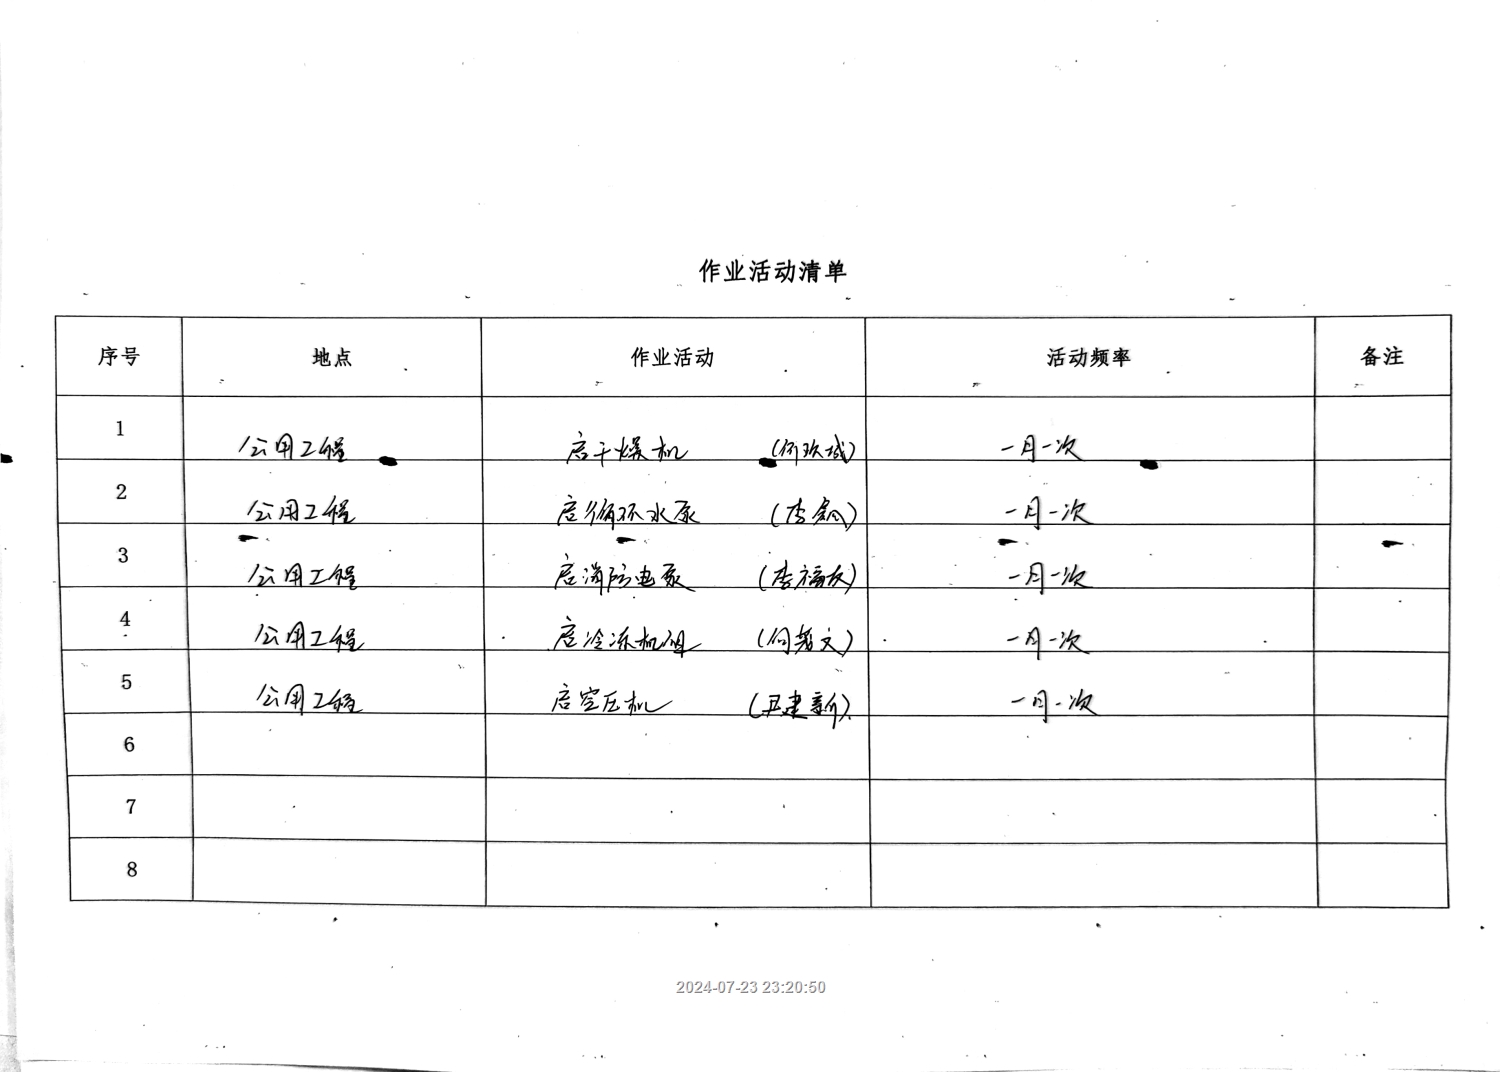 作业活动清单
序号 地点 作业活动 活动频率 备注
1 公用工程 启干燥机 一月一次
2 公用工程 启循环水泵 (李 一月一次
3 公用工程 启消防电泵 (李福友) 一月一次
4 公用工程 启冷冻机组 一月一次
5 公用工程 启空压机 (尹建新) 一月一次
6
7
8
2024-07-23 23:20:50